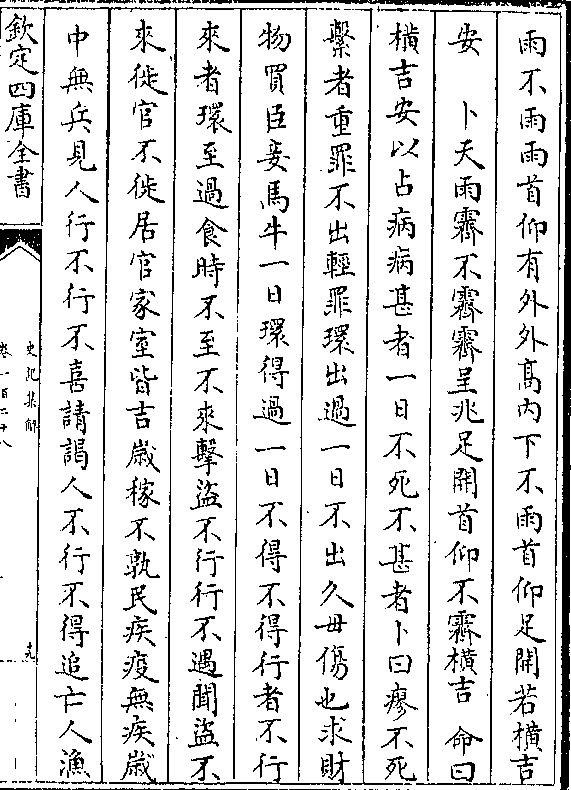 雨不雨雨首仰有外外髙内下不雨首仰足開若横吉
安　卜天雨霽不霽霽呈兆足開首仰不霽横吉　命曰
横吉安以占病病甚者一日不死不甚者卜日瘳不死
繫者重罪不出輕罪環出過一日不出久毋傷也求財
物買臣妾馬牛一日環得過一日不得不得行者不行
來者環至過食時不至不來擊盜不行行不遇聞盜不
來徙官不徙居官家室皆吉嵗稼不孰民疾疫無疾嵗
中無兵見人行不行不喜請謁人不行不得追亡人漁
欽定四庫全書
史記集解
卷一百二十八